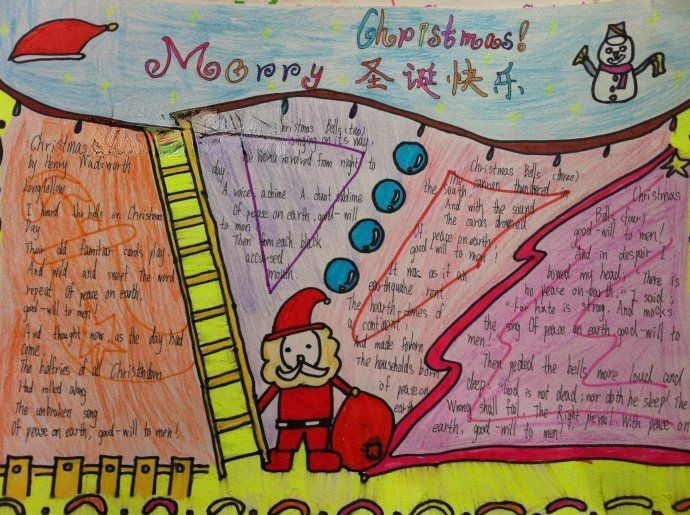 Christmas!
Merry 圣诞快乐
Christmas
by Henry Wadsworth
Longfellow
I heard the bells on Christmas
Day
Their old familiar carols play,
And wild and sweet The word
repeat Of peace on earth,
good-will to men!
And thought how, as the day had
come,
The belfries of all Christendom
Had rolled along
The unbroken song
Of peace on earth, good-will to men!
Christmas Bells (two)
singing on its way,
The world revolved from night to
day,
A voice, a chime A chant sublime
Of peace on earth, good-will
to men
Then from each black
accursed
mouth
Christmas Bells (three)
The cannon thundered in
the south
And with the sound
The carols drowned
Of peace on earth
good-will to men!
It was as if an
earthquake rent
The hearth-stones of
a continent
and made forlorn
The households born
of peace on
earth
Christmas
Bells (four)
good-will to men!
And in despair I
bowed my head; "There is
no peace on earth," I said;
"For hate is strong, And mocks
the song Of peace on earth good-will to
men!
Then pealed the bells more loud and
deep: "God is not dead; nor doth he sleep! The
Wrong shall fail, The Right prevail With peace on
earth, good-will to men!"